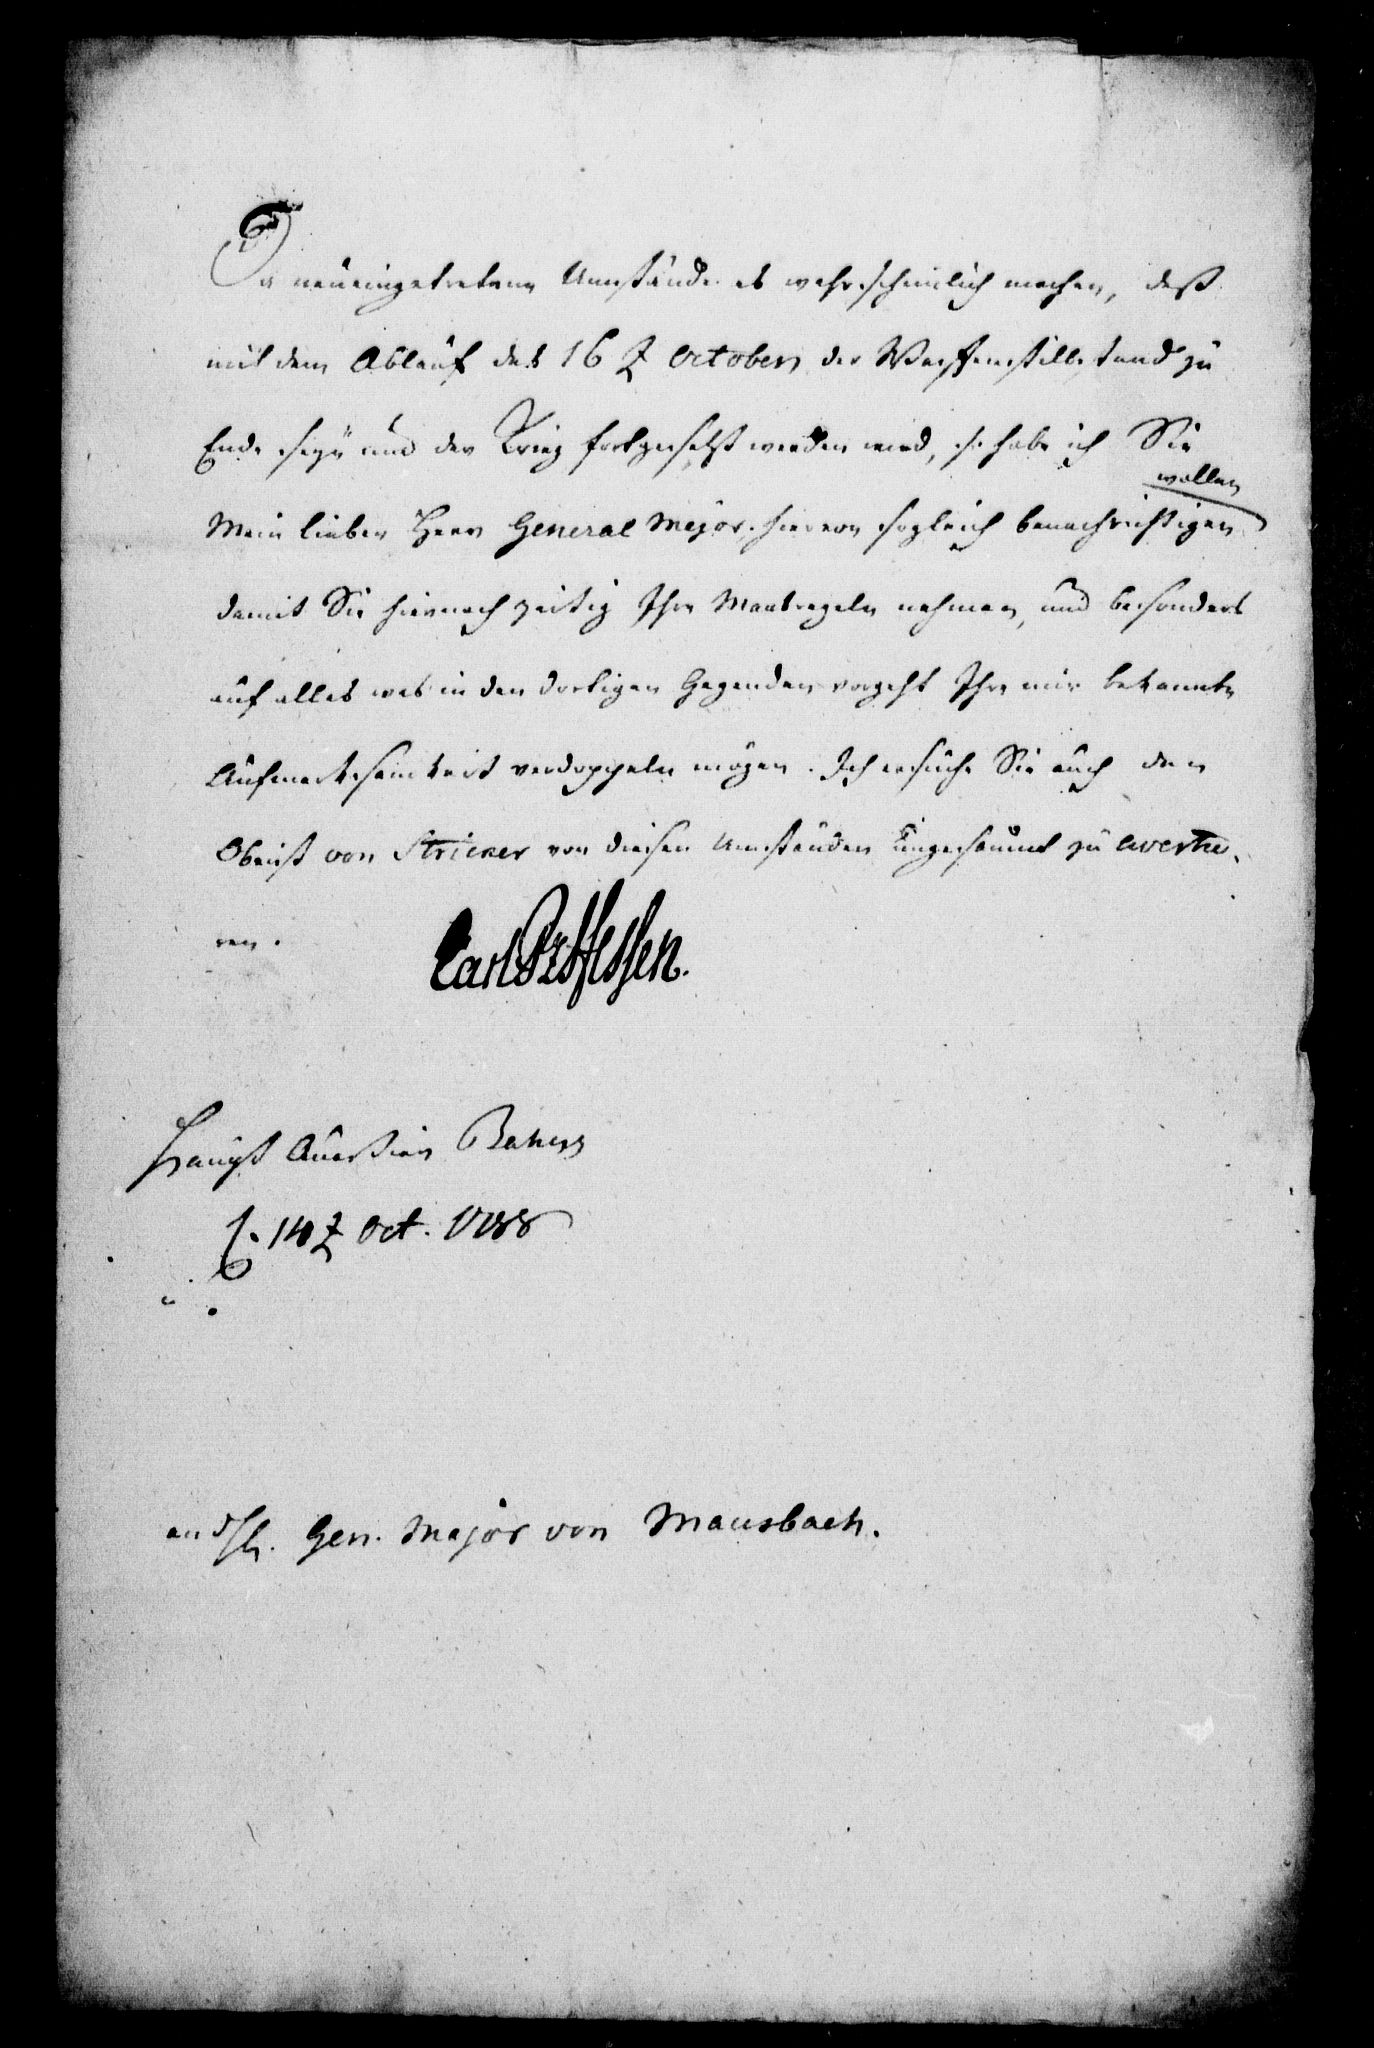 Da neueingetretene Umstände es wahrscheinlich machen, daß
mit dem Ablauf des 16 t October der Waffenstillstand zu
Ende seyn und der Krieg fortgesetzt werden wird, so habe ich Sie
wollen
Mein lieber Herr General Major, hievon sogleich benachrichtigen
damit Sie hiernach zeitig Ihre Maasregeln nehmen, und besonders
auf alles was in den dortigen Gegenden vorgeht Ihre mir bekannte
Aufmerksamkeit verdoppeln mögen. Ich ersuche Sie auch den
Obrist von Stricker von diesen Umständen ungesäumt zu averti-
ren.
Carl PzHessen.
Haupt Quartier Bahuus
d. 14 t Oct. 1788
an d H. Gen. Major von Mansbach.